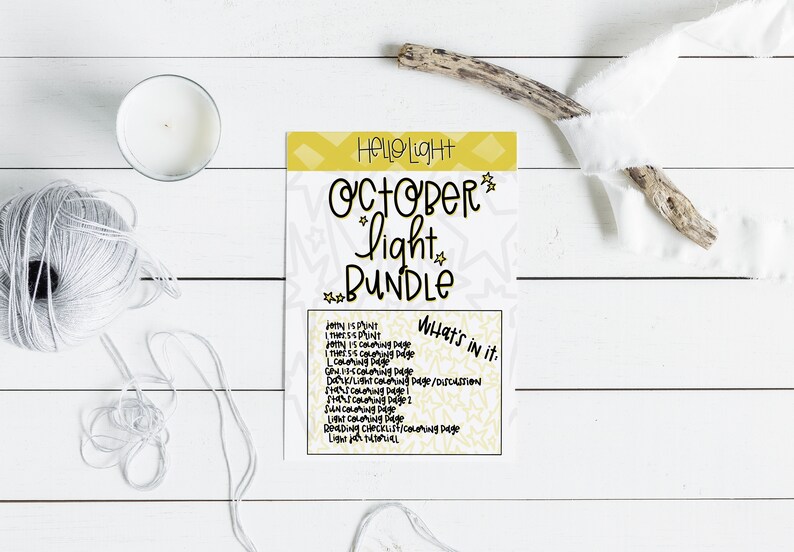 HELLO LIGHT
OCTOBER
light
BUNDLE
WHAT'S IN IT:
JOHN 1:5 PRINT
1 THES. 5:5 PRINT
JOHN 1:5 COLORING PAGE
1 THES. 5:5 COLORING PAGE
L COLORING PAGE
GEN. 1:3-5 COLORING PAGE
DARK/LIGHT COLORING PAGE/DISCUSSION
STARS COLORING PAGE 1
STARS COLORING PAGE 2
SUN COLORING PAGE
LIGHT COLORING PAGE
READING CHECKLIST/COLORING PAGE
LIGHT JAR TUTORIAL